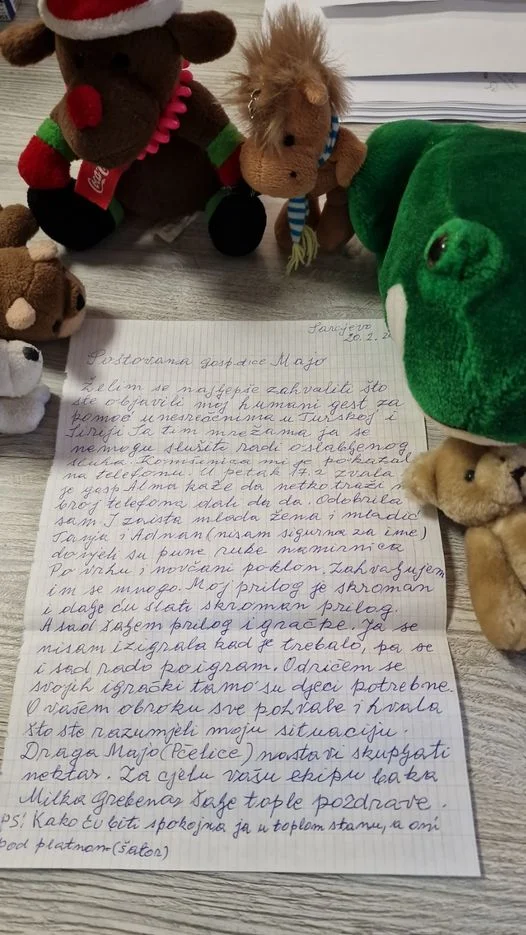 Coca
Sarajevo
20.2.2
Poštovana gospđice Majo
Želim se najljepše zahvaliti što
ste objavili moj humani gest za
pomoć unesrećnima u Turskoj i
Siriji Ta tim mrežama ja se
nemogu služiti radi oslabljenog
sluha. Komšinica mi je pokazala
na telefonu. U petak 17.2 zvala
je gosp Alma kaže da netko traži
broj telefona dali da da. Odobrila
sam. I zaista mlada žena i mladić
Tanja i Adnan (nisam sigurna za ime)
donijeli su pune ruke namirnica
Po vrhu i novčani poklon. Zahvaljujem
im se mnogo. Moj prilog je skroman
i dalje ću slati skroman prilog.
A sad šaljem prilog i igračke. Ja se
nisam izigrala kad je trebalo, pa se
i sad rado poigram. Odričem se
svojih igrački tamo su djeci potrebne.
O vašem obroku sve pohvale i hvala
što ste razumjeli moju situaciju.
Draga Majo (Pčelice) nastavi skupljati
nektar. Za cjelu vašu ekipu baka
Milka Grebenar šalje tople pozdrave.
PS! Kako ću biti spokojna ja u toplom stanu, a oni
pod platnom (šator)